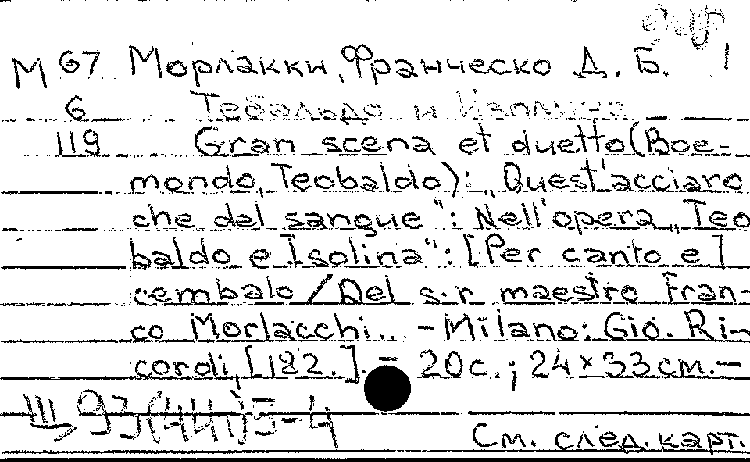 М 67 Морлакки, Франческо Д. Б. 1
6 Тебальдо и Изолина
119 Gran scena et duetto (Boe-
mondo, Teobaldo): „Quest'acciaro
che dal sangue": Nell'opera „Teo
baldo e Isolina": [Per canto e]
cembalo / Del s-r maestro Fran-
co Morlacchi.. - Milano: Gio. Ri-
cordi, [182.]. - 20 с.; 24 x 33 см. -
93(441)5-4
См. след. карт.